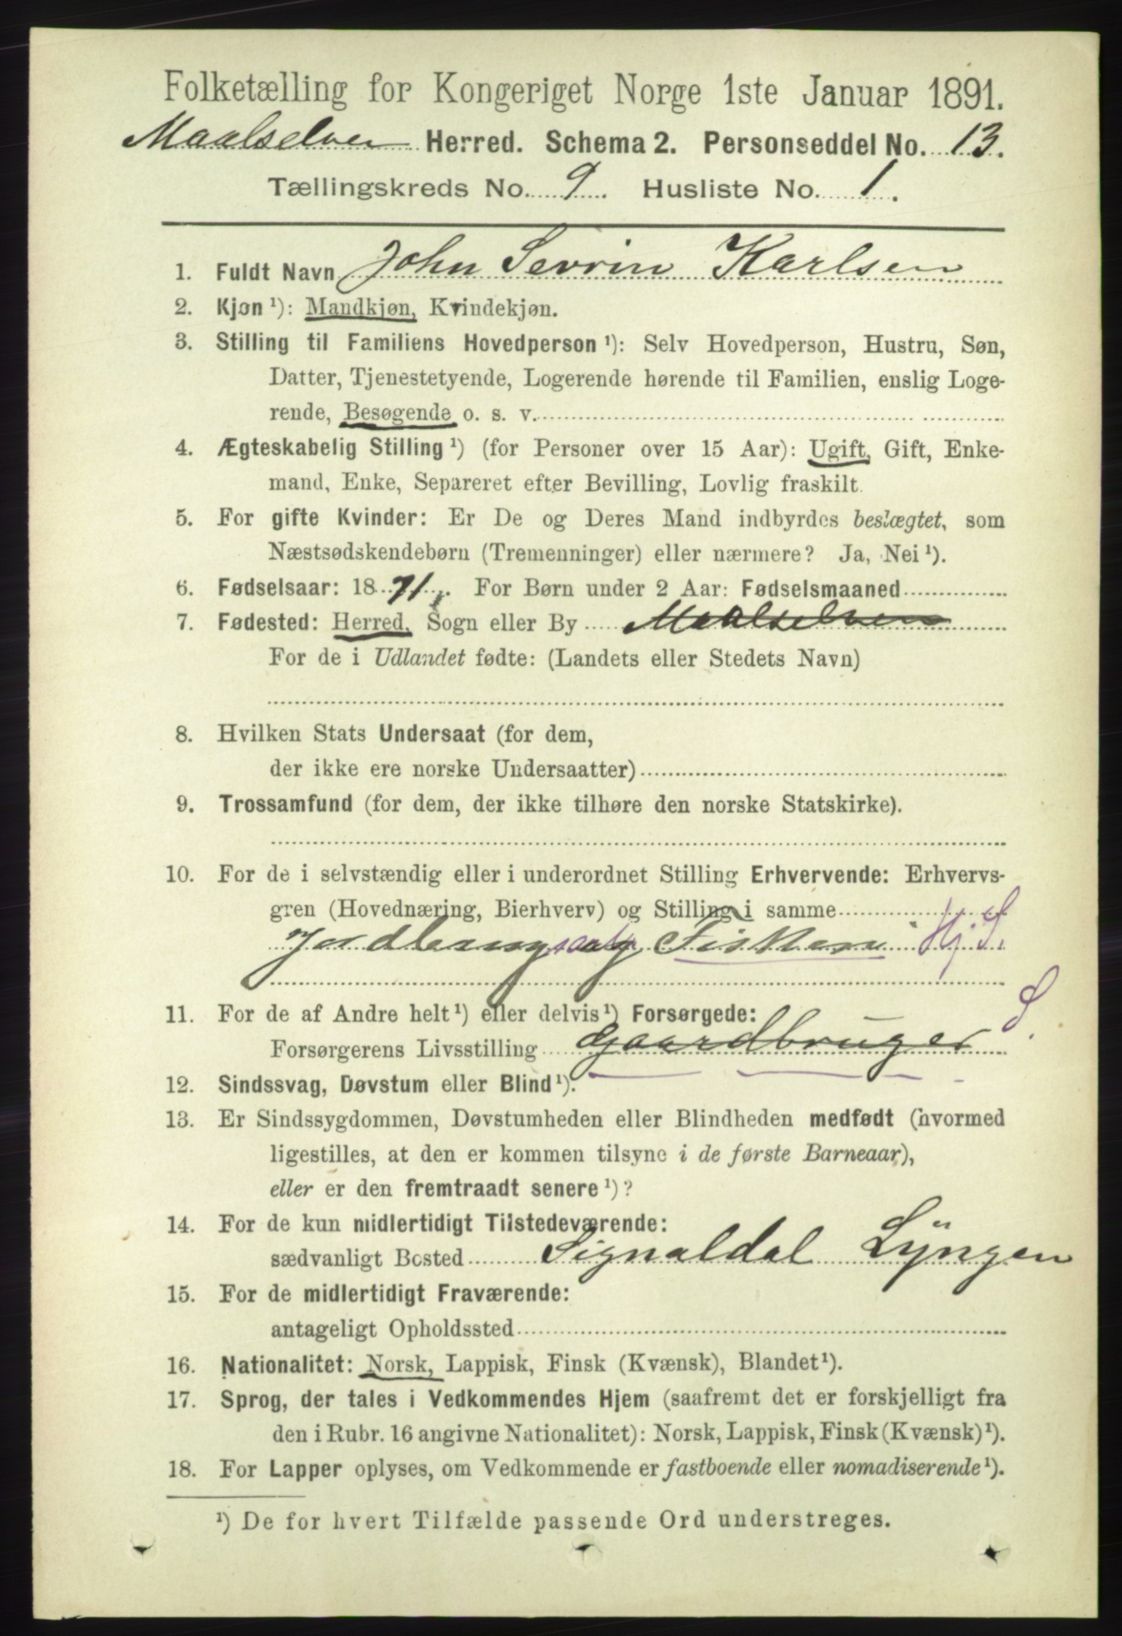 Folketælling for Kongeriget Norge 1ste Januar 1891.
Maalselven Herred. Schema 2. Personseddel No. 13.
Tællingskreds No. 9. Husliste No. 1.
1. Fuldt Navn John Sevrin Karlsen
2. Kjøn ¹): Mandkjøn, Kvindekjøn.
3. Stilling til Familiens Hovedperson ¹): Selv Hovedperson, Hustru, Søn,
Datter, Tjenestetyende, Logerende hørende til Familien, enslig Loge-
rende, Besøgende o. s. v.
4. Ægteskabelig Stilling ¹) (for Personer over 15 Aar): Ugift, Gift, Enke-
mand, Enke, Separeret efter Bevilling, Lovlig fraskilt.
5. For gifte Kvinder: Er De og Deres Mand indbyrdes beslægtet, som
Næstsødskendebørn (Tremenninger) eller nærmere? Ja, Nei ¹).
6. Fødselsaar: 1871. For Børn under 2 Aar: Fødselsmaaned
7. Fødested: Herred, Sogn eller By Maalselven
For de i Udlandet fødte: (Landets eller Stedets Navn)
8. Hvilken Stats Undersaat (for dem,
der ikke ere norske Undersaatter)
9. Trossamfund (for dem, der ikke tilhøre den norske Statskirke).
10. For de i selvstændig eller i underordnet Stilling Erhvervende: Erhvervs-
gren (Hovednæring, Bierhverv) og Stilling i samme
og Fiskeri Hj. S.
11. For de af Andre helt ¹) eller delvis ¹) Forsørgede:
Forsørgerens Livsstilling gaardbruger S.
12. Sindssvag, Døvstum eller Blind ¹).
13. Er Sindssygdommen, Døvstumheden eller Blindheden medfødt (hvormed
ligestilles, at den er kommen tilsyne i de første Barneaar),
eller er den fremtraadt senere ¹)?
14. For de kun midlertidigt Tilstedeværende:
sædvanligt Bosted Signaldal Lyngen
15. For de midlertidigt Fraværende:
antageligt Opholdssted
16. Nationalitet: Norsk, Lappisk, Finsk (Kvænsk), Blandet ¹).
17. Sprog, der tales i Vedkommendes Hjem (saafremt det er forskjelligt fra
den i Rubr. 16 angivne Nationalitet): Norsk, Lappisk, Finsk (Kvænsk) ¹).
18. For Lapper oplyses, om Vedkommende er fastboende eller nomadiserende ¹).
¹) De for hvert Tilfælde passende Ord understreges.